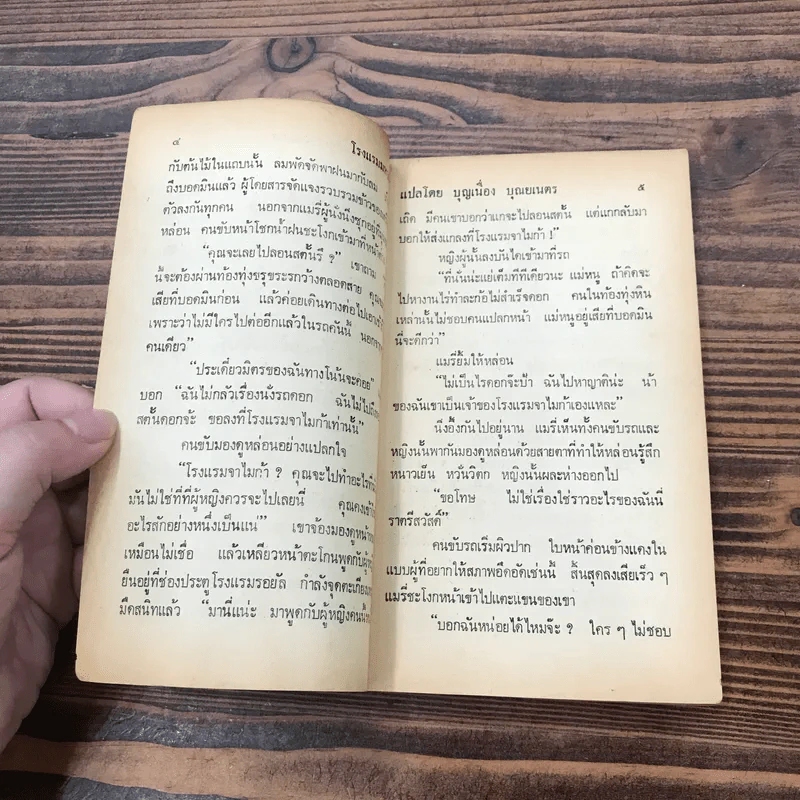 ๔
โรงแรม
กับต้นไม้ในแถบนั้น ลมพัดจัดพาฝนมากับลม
ถึงบอดมินแล้ว ผู้โดยสารจัดแจงรวบรวมข้าวของ
ตัวลงกันทุกคน นอกจากแมรี่ผู้นั่งนิ่งซุกอยู่
หล่อน คนขับหน้าโชกน้ำฝนชะโงกเข้ามาที่หน้า
“คุณจะเลยไปลอนสตั้นรึ ?” เขาถาม
นี้จะต้องผ่านท้องทุ่งขรุขระรกว้างตลอดสาย
เสียที่บอดมินก่อน แล้วค่อยเดินทางต่อไปเอา
เพราะว่าไม่มีใครไปต่ออีกแล้วในรถคันนี้ นอกจาก
คนเดียว”
“ประเดี๋ยวมิตรของฉันทางโน้นจะคอย”
บอก “ฉันไม่กลัวเรื่องนั่งรถดอก ฉันไม่ไป
สตั้นดอกจ้ะ ขอลงที่โรงแรมจาไมก้าเท่านั้น”
คนขับมองดูหล่อนอย่างแปลกใจ
“โรงแรมจาไมก้า ? คุณจะไปทำอะไร
มันไม่ใช่ที่ที่ผู้หญิงควรจะไปเลยนี่ คุณคง
อะไรสักอย่างหนึ่งเป็นแน่” เขาจ้องมองดูหน้า
เหมือนไม่เชื่อ แล้วเหลียวหน้าตะโกนพูดกับ
ยืนอยู่ที่ช่องประตูโรงแรมรอยัล กำลังจุดตะเกียง
มืดสนิทแล้ว “มานี่แน่ะ มาพูดกับผู้หญิงคน
แปลโดย บุญเนื่อง บุณยเนตร ๕
เถิด มีคนเขาบอกว่าแกจะไปลอนสตั้น แต่แกกลับมา
บอกให้ส่งแกลงที่โรงแรมจาไมก้า !”
หญิงผู้นั้นลงบันไดเข้ามาที่รถ
“ที่นั่นน่ะแย่เต็มทีทีเดียวนะ แม่หนู ถ้าคิดจะ
ไปหางานไร่ทำละก้อไม่สำเร็จดอก คนในท้องทุ่งหิน
เหล่านั้นไม่ชอบคนแปลกหน้า แม่หนูอยู่เสียที่บอดมิน
นี่จะดีกว่า”
แมรี่ยิ้มให้หล่อน
“ไม่เป็นไรดอกจ๊ะป้า ฉันไปหาญาติน่ะ น้า
ของฉันเขาเป็นเจ้าของโรงแรมจาไมก้าเองแหละ”
นิ่งอึ้งกันไปอยู่นาน แมรี่เห็นทั้งคนขับรถและ
หญิงนั้นพากันมองดูหล่อนด้วยสายตาที่ทำให้หล่อนรู้สึก
หนาวเย็น หวั่นวิตก หญิงนั้นผละห่างออกไป
“ขอโทษ ไม่ใช่เรื่องใช่ราวอะไรของฉันนี่
ราตรีสวัสดิ์”
คนขับรถเริ่มผิวปาก ใบหน้าค่อนข้างแดงใน
แบบผู้ที่อยากให้สภาพอึดอัดเช่นนี้ สิ้นสุดลงเสียเร็ว ๆ
แมรี่ชะโงกหน้าเข้าไปแตะแขนของเขา
“บอกฉันหน่อยได้ไหมจ๊ะ ? ใคร ๆ ไม่ชอบ